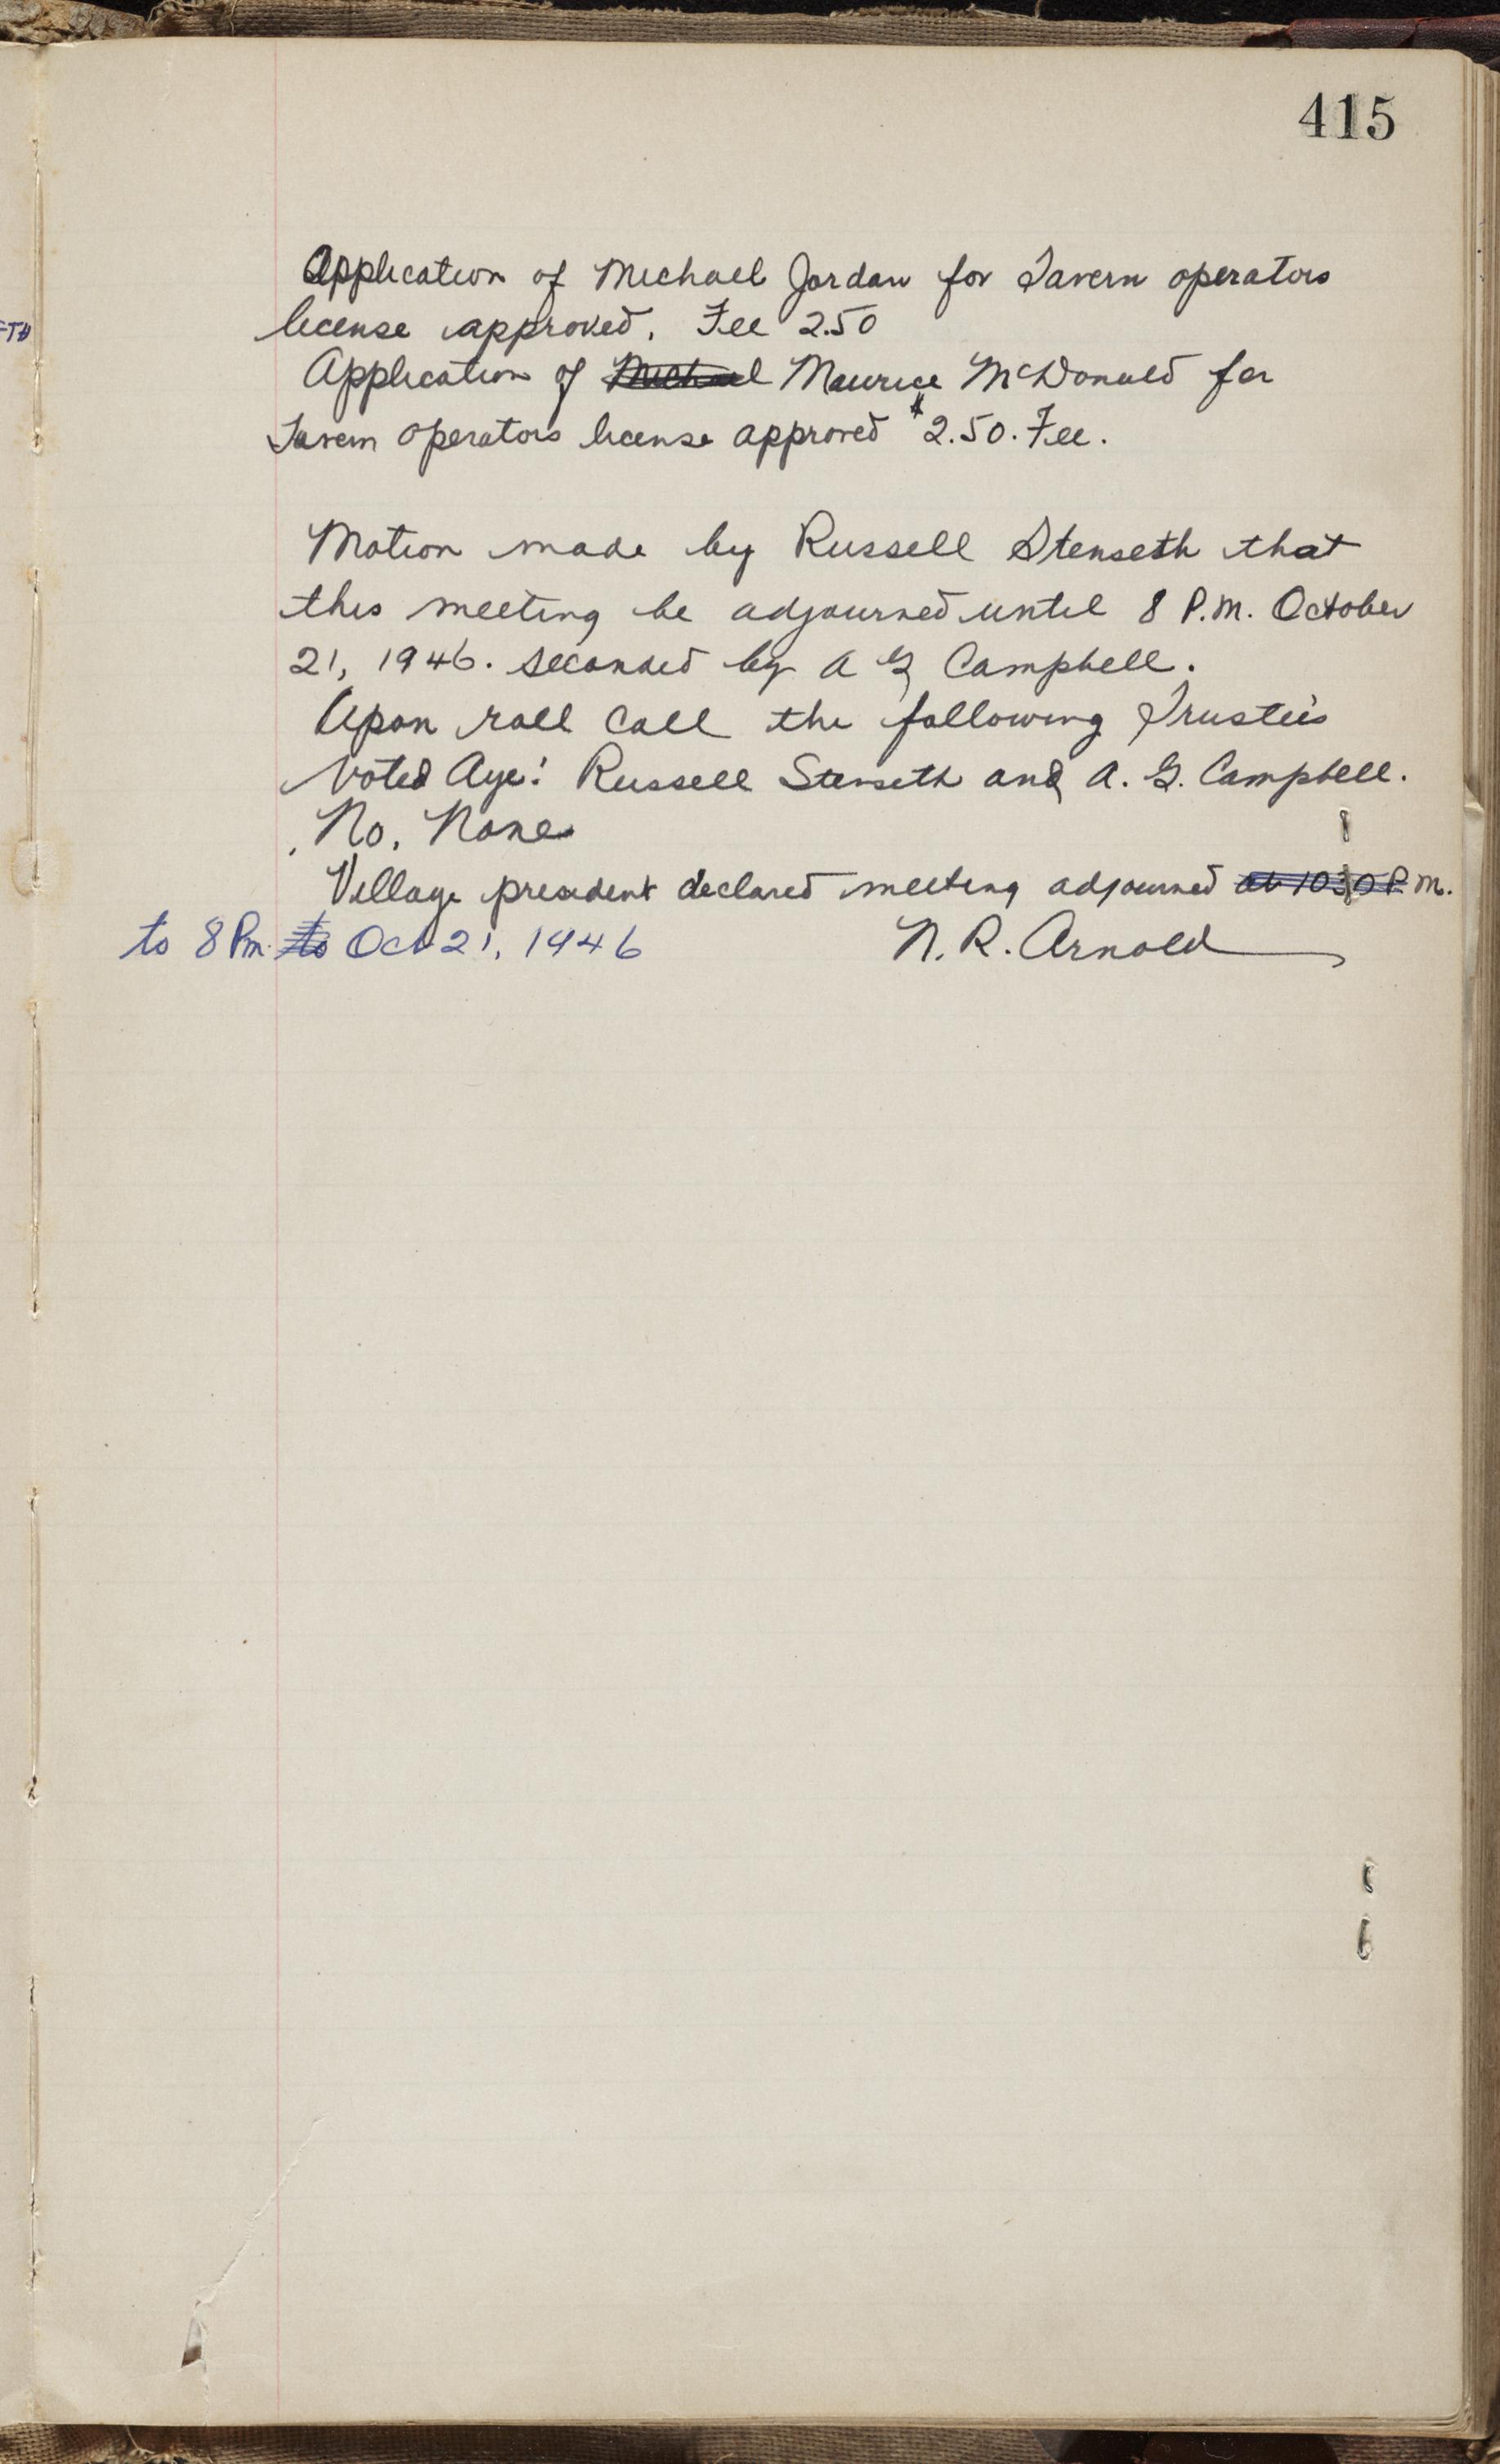 415
Application of Michael Jordan for Tavern operators
license approved. Fee 2.50
Application of Michael Maurice McDonald for
Tavern operators license approved $2.50. Fee.
Motion made by Russell Stenseth that
this meeting be adjourned until 8 P.M. October
21, 1946. seconded by A G Campbell.
Upon roll call the following Trustee's
Voted Aye: Russell Stenseth and A. G. Campbell.
No. None
Village president declared meeting adjourned at 1030 P.M.
to 8 Pm. to Oct 21, 1946 N. R. Arnold